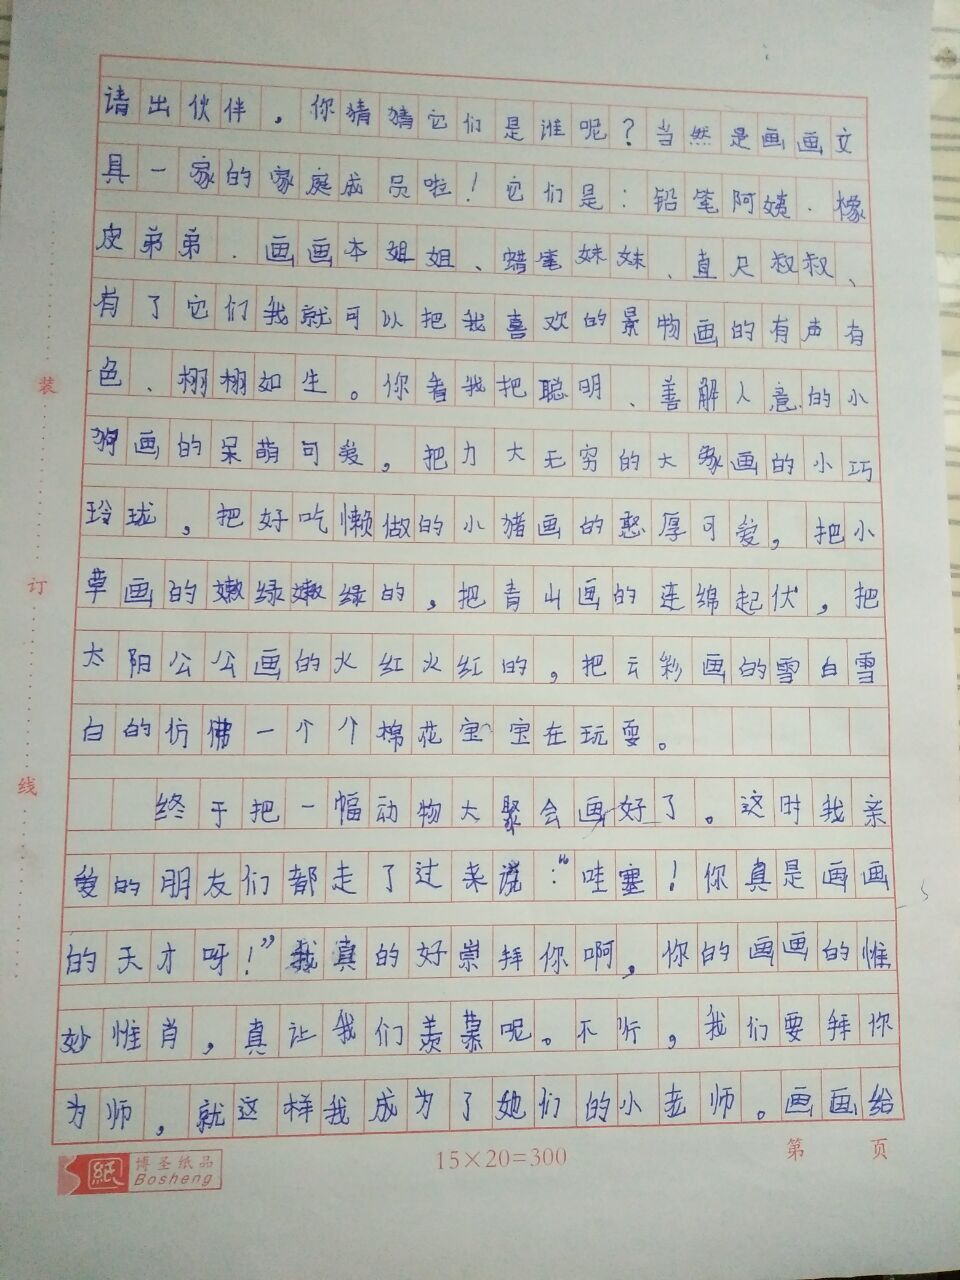 请出伙伴，你猜猜它们是谁呢？当然是画画文
具一家的家庭成员啦！它们是：铅笔阿姨、橡
皮弟弟、画画本姐姐、蜡笔妹妹、直尺叔叔、
有了它们我就可以把我喜欢的景物画的有声有
色、栩栩如生。你看我把聪明、善解人意的小
狗画的呆萌可爱，把力大无穷的大象画的小巧
玲珑，把好吃懒做的小猪画的憨厚可爱，把小
草画的嫩绿嫩绿的，把青山画的连绵起伏，把
太阳公公画的火红火红的，把云彩画的雪白雪
白的仿佛一个个棉花宝宝在玩耍。
终于把一幅动物大聚会画好了。这时我亲
爱的朋友们都走了过来说：“哇塞！你真是画画
的天才呀！”我真的好崇拜你啊，你的画画的惟
妙惟肖，真让我们羡慕呢。不行，我们要拜你
为师，就这样我成为了她们的小老师。画画给
装
订
线
紙 博圣纸品
Bosheng
15×20=300
第 页